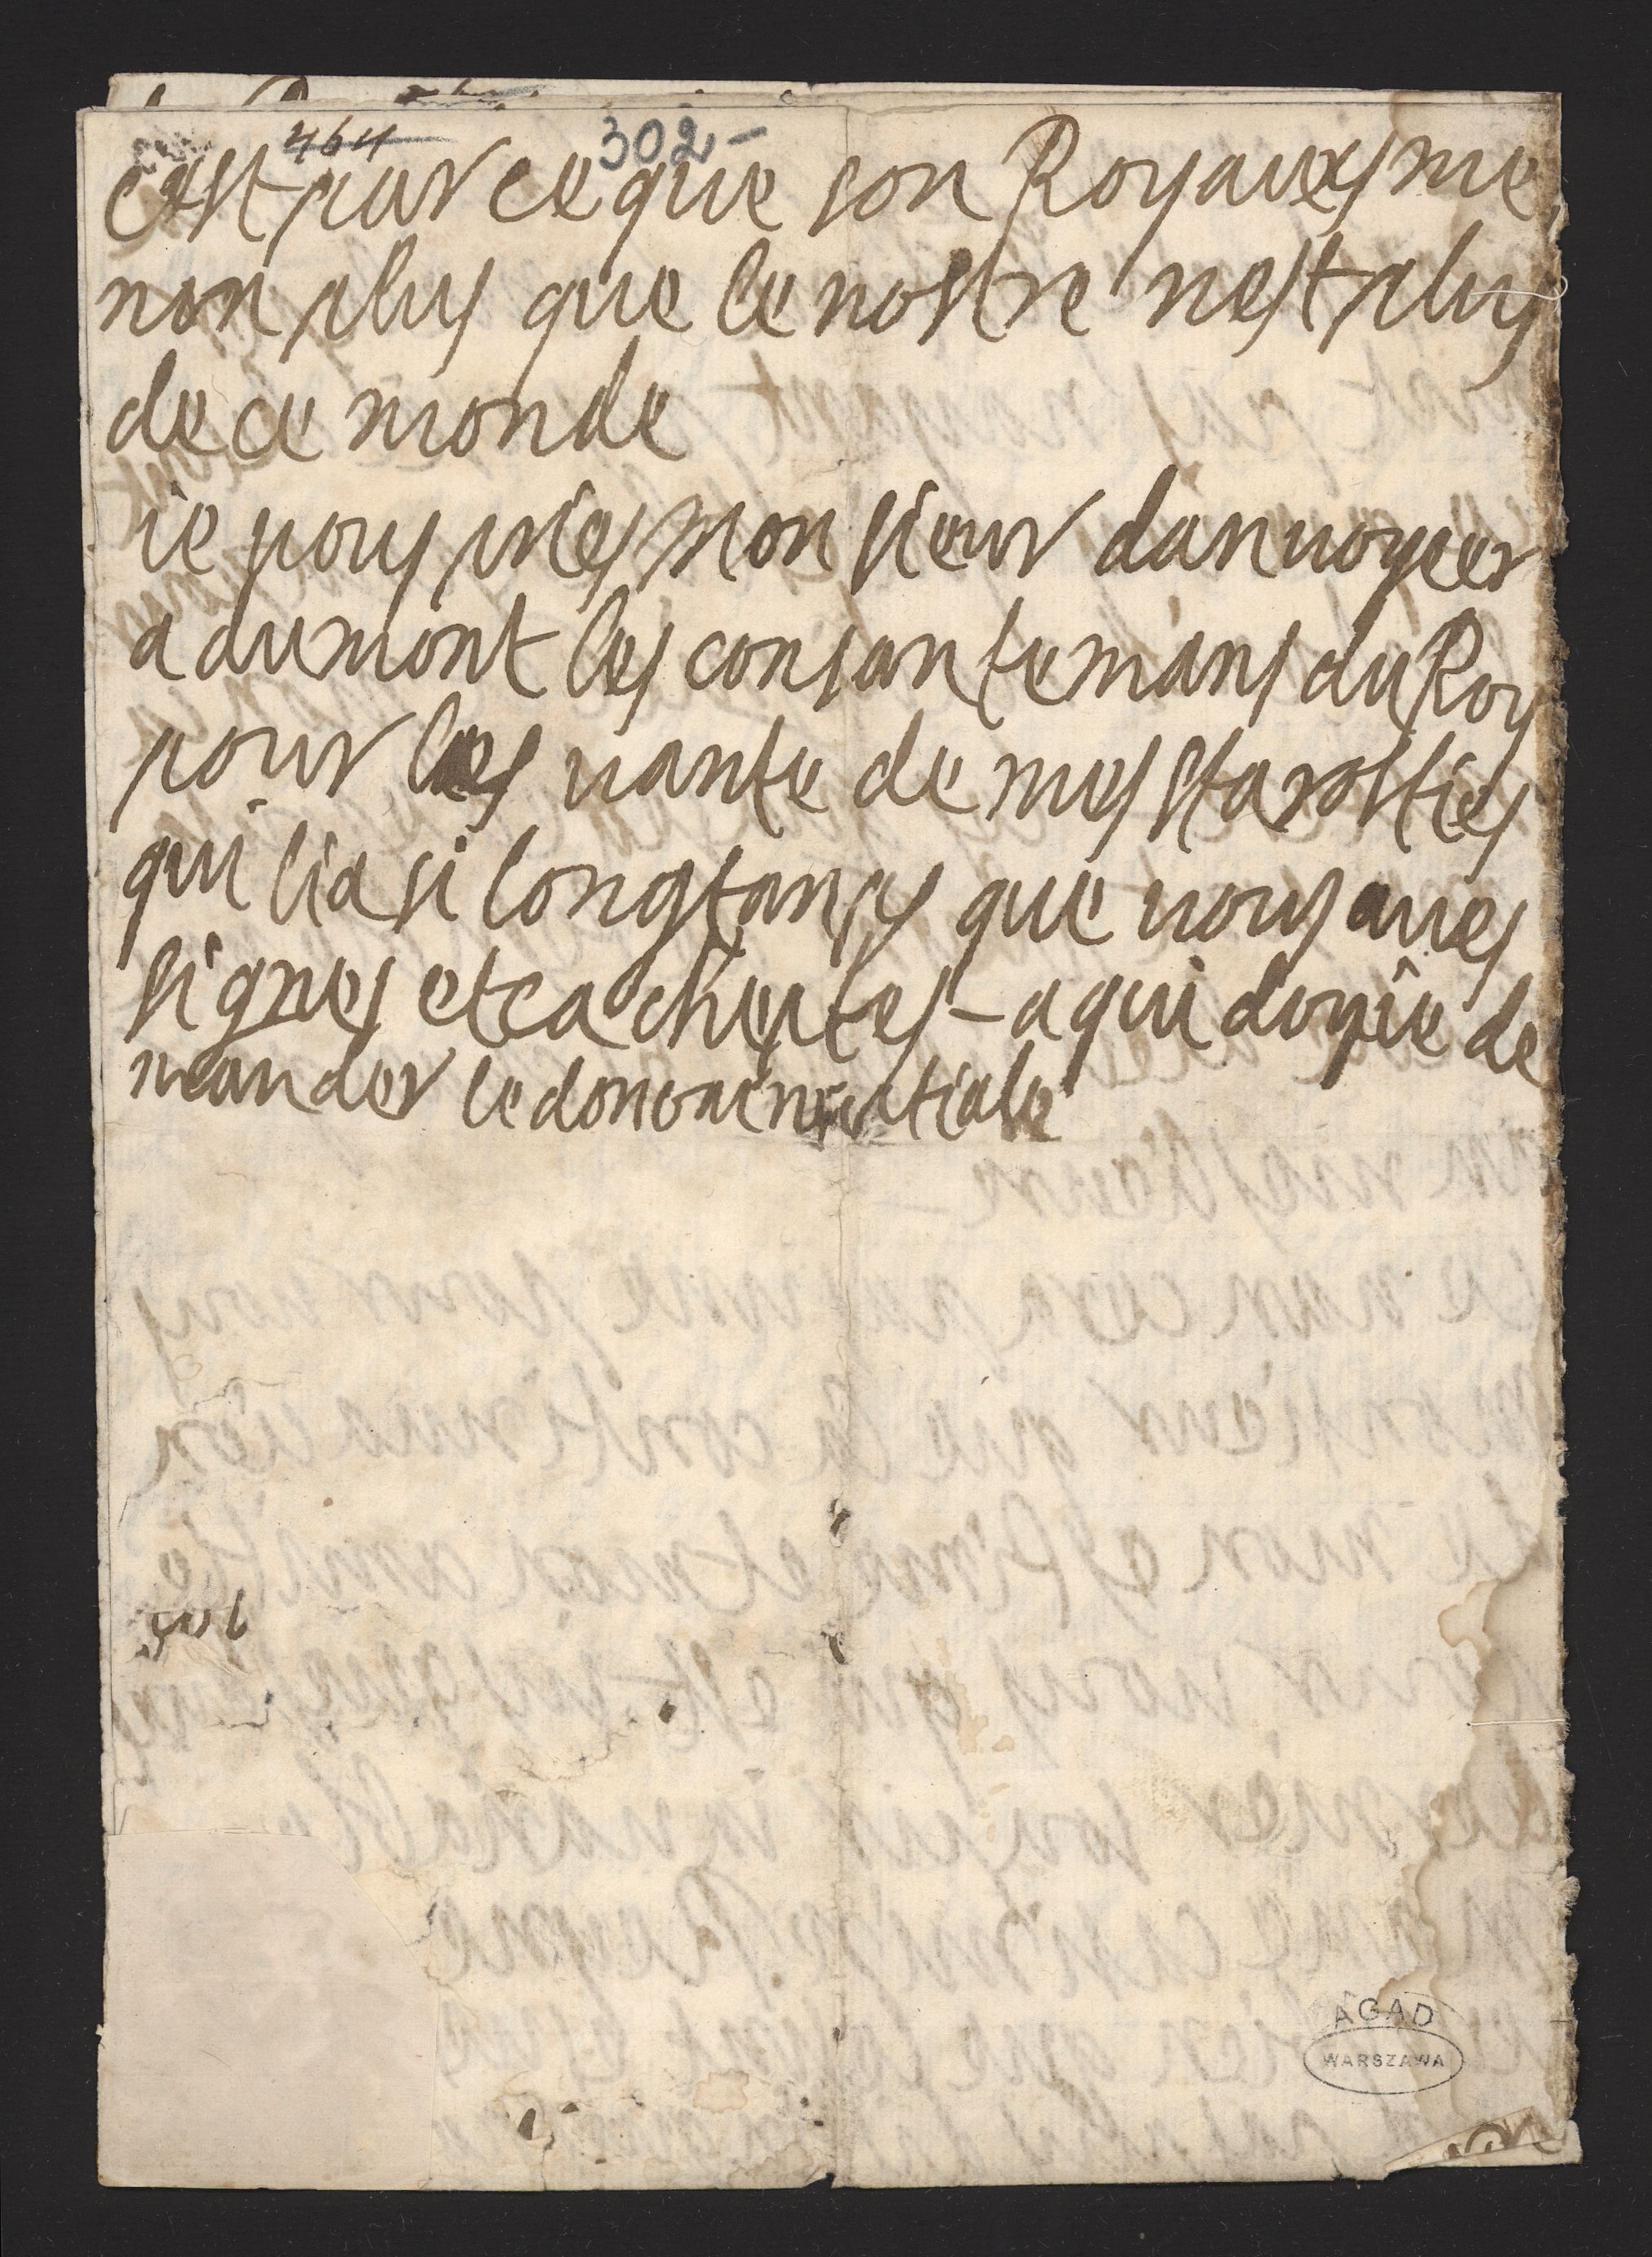 464 302-
cest par ce que son Royauxme,
non plus que le nostre nest plus
de ce monde
ie vous pries Monsieur danuoyeer
a dumont les consantemans du Roy
pour les vante de mes starosties
qui lia si longtamps que vous aues
signes et cachestes - a qui doyie de
mander
AGAD
WARSZAWA